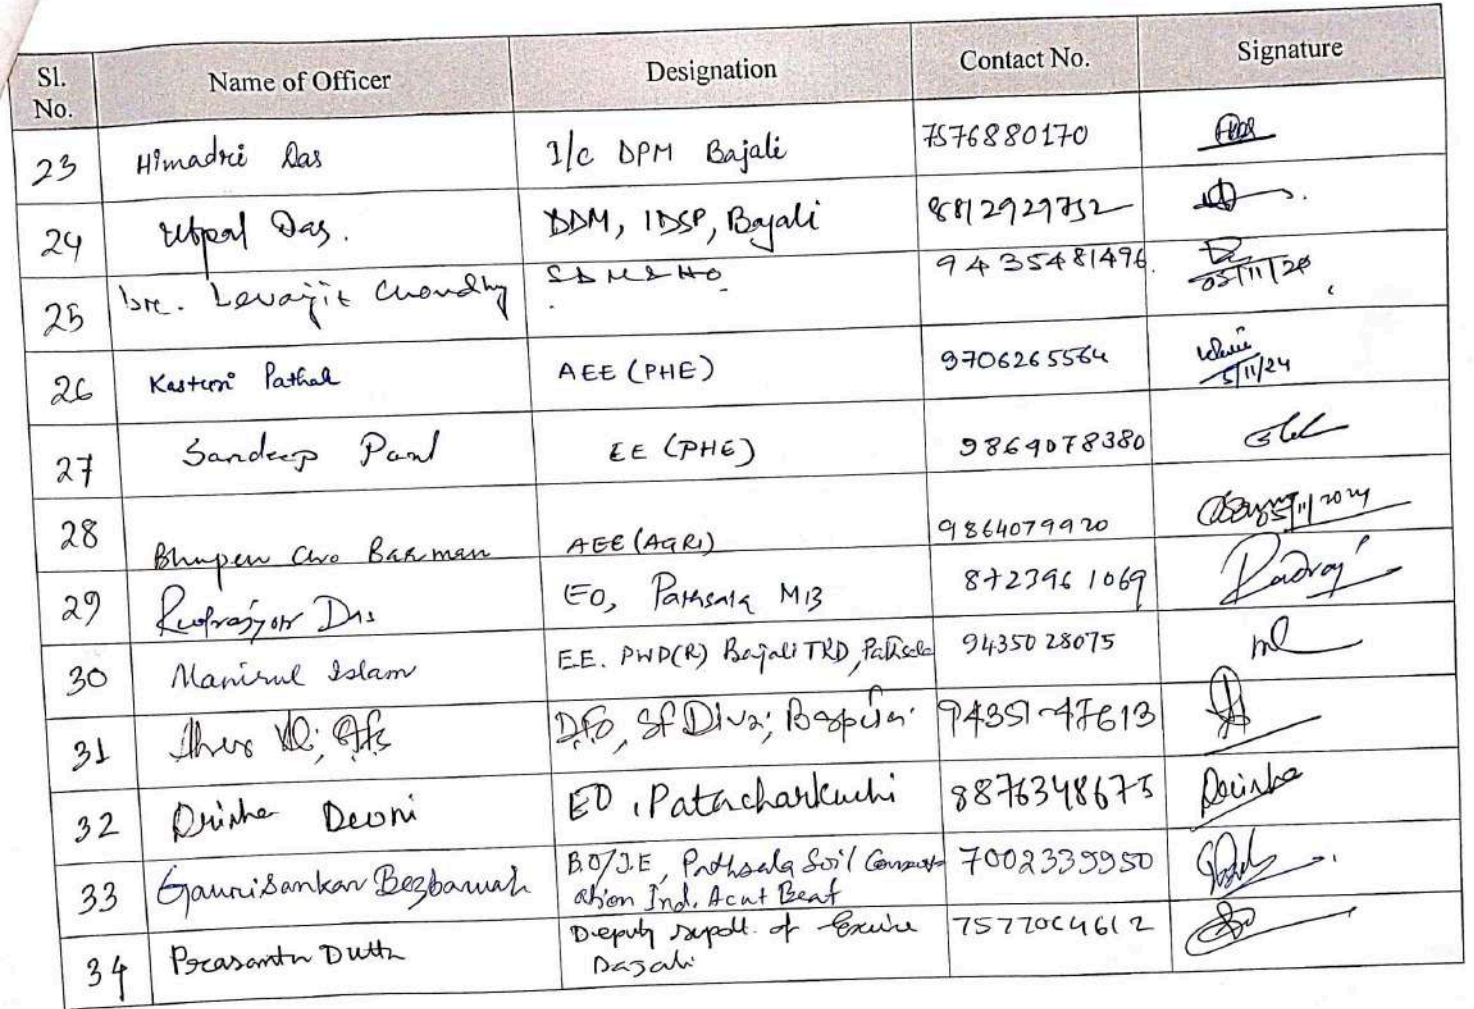 Sl. No. Name of Officer Designation Contact No. Signature
23 Himadri Das I/c DPM Bajali 7576880170
24 Utpal Das. DDM, IDSP, Bajali 8812929752
25 Dr. Lavajit Choudhy SDM&HO 9435481496. 05/11/24
26 Kasturi Pathak AEE (PHE) 9706265564 5/11/24
27 Sandeep Paul EE (PHE) 9864078380
28 Bhupen Ch Barman AEE (AGRI) 9864079920 5/11/2024
29 Rudrajyoti Das EO, Pathsala MB 8723961069
30 Manirul Islam EE. PWD(R) Bajali TRD, Pathsala 9435028075
31 DFO, SF Divn; 94351-47613
32 Drisha Deoni EO, Patacharkuchi 8876348675 Drisha
33 Gaurisankar Bezbaruah B.O/J.E, Pathsala Soil Conserv 7002339950
ation Ind. Beat
34 Prasanta Dutta Deputy supdt. of Excise 7577064612
Bajali